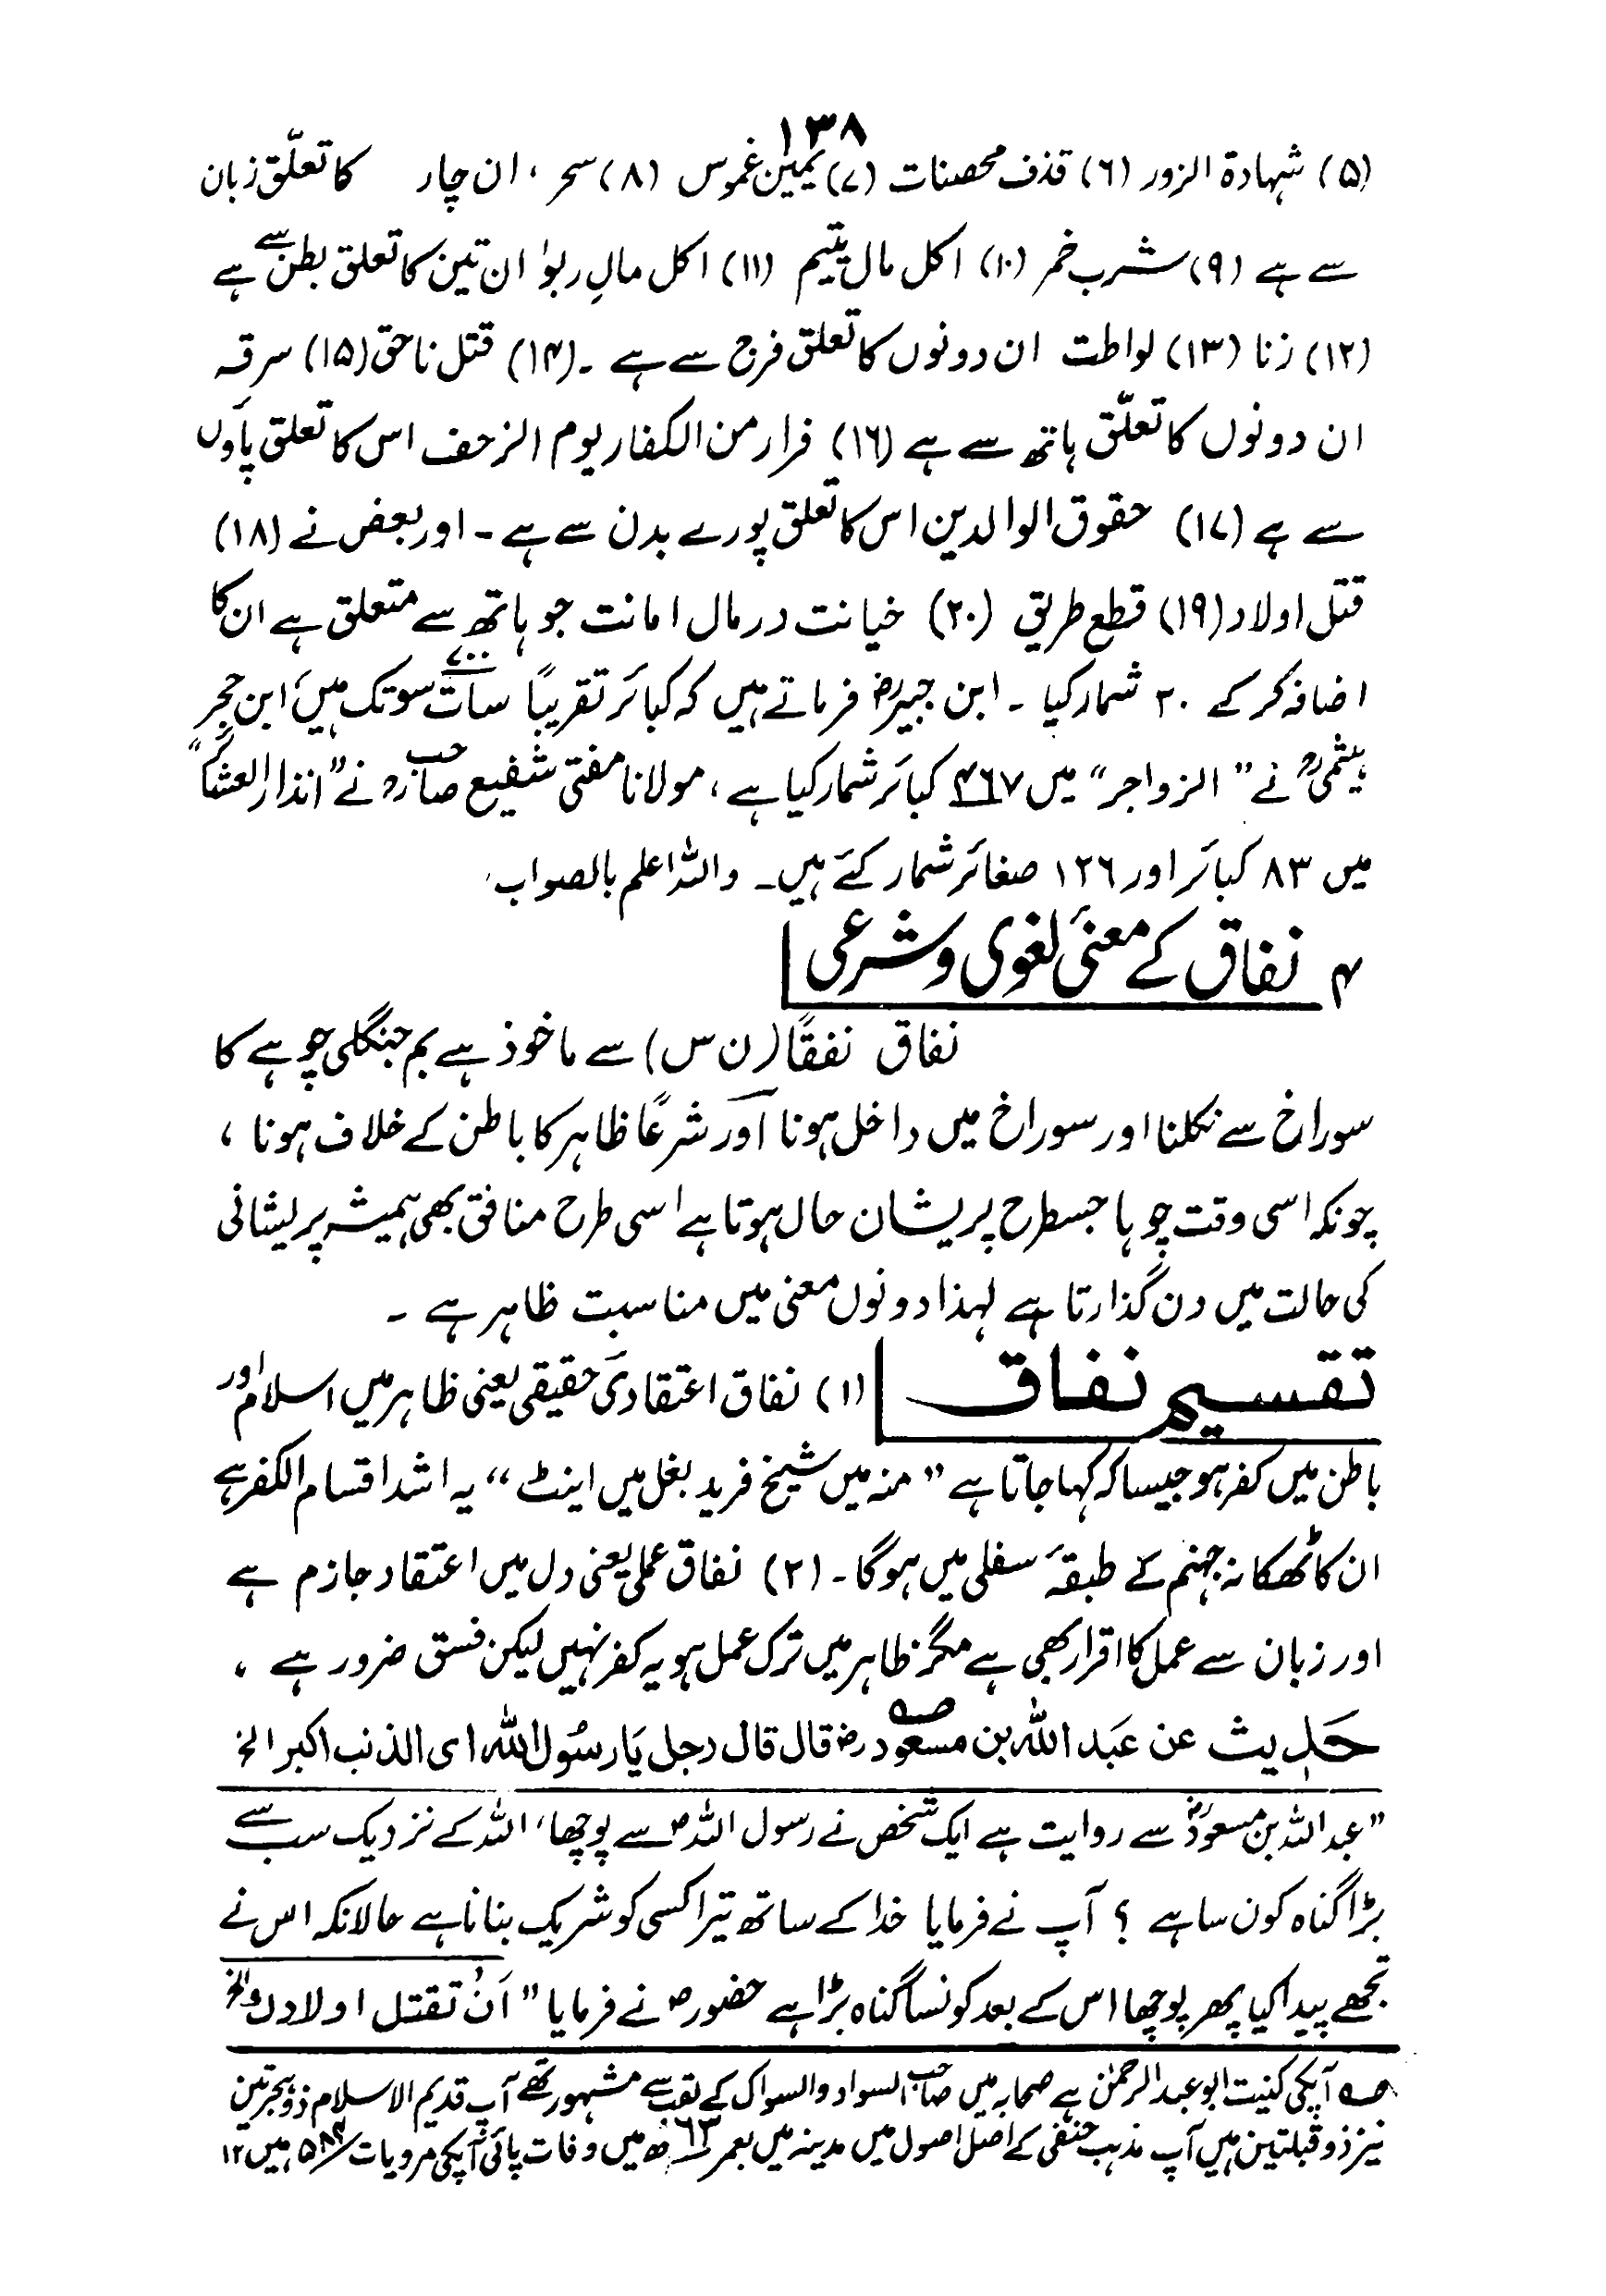 ۱۳۸
(۵) شہادۃ الزور (٦) قذف محصنات (۷) یمین غموس (۸) سحر ، ان چار کا تعلّق زبان
سے ہے (۹) شرب خمر (۱۰) اکل مال یتیم (۱۱) اکل مالِ ربوٰ ان تین کا تعلق بطن سے ہے
(۱۲) زنا (۱۳) لواطت ان دونوں کا تعلق فرج سے ہے ۔(۱۴) قتل ناحق (۱۵) سرقہ
ان دونوں کا تعلّق ہاتھ سے ہے (۱٦) فرار من الکفار یوم الزحف اس کا تعلق پاؤں
سے ہے (۱۷) حقوق الوالدین اس کا تعلق پورے بدن سے ہے ۔ اور بعض نے (۱۸)
قتل اولاد (۱۹) قطع طریق (۲۰) خیانت در مال امانت جو ہاتھ سے متعلق ہے ان کا
اضافہ کر کے ۲۰ شمار کیا ۔ ابن جبیرؓ فرماتے ہیں کہ کبائر تقریبًا سات سو ۷۰۰ تک ہیں، ابن حجر
ہیثمیؒ نے ” الزواجر “ میں ۴٦۷ کبائر شمار کیا ہے ، مولانا مفتی شفیع صاحبؒ نے ” انذار العشائر “
میں ۸۳ کبائر اور ۱۲٦ صغائر شمار کئے ہیں ۔ واللہ اعلم بالصواب
۴ نفاق کے معنیٔ لغوی و شرعی
نفاق نفقًا (ن س) سے ماخوذ ہے بم جنگلی چوہے کا
سوراخ سے نکلنا اور سوراخ میں داخل ہونا اور شرعًا ظاہر کا باطن کے خلاف ہونا ،
چونکہ اسی وقت چوہا جسطرح پریشان حال ہوتا ہے اسی طرح منافق بھی ہمیشہ پریشانی
کی حالت میں دن گذارتا ہے لہذا دونوں معنی میں مناسبت ظاہر ہے ۔
تقسیم نفاق (۱) نفاق اعتقادی حقیقی یعنی ظاہر میں اسلام اور
باطن میں کفر ہو جیسا کہ کہا جاتا ہے ” منہ میں شیخ فرید بغل میں اینٹ “ یہ اشد اقسام الکفر ہے
ان کا ٹھکانہ جہنم کے طبقۂ سفلی میں ہوگا ۔ (۲) نفاق عملی یعنی دل میں اعتقاد جازم ہے
اور زبان سے عمل کا اقرار بھی ہے مگر ظاہر میں ترک عمل ہو یہ کفر نہیں لیکن فسق ضرور ہے ،
حَدیث عن عَبد اللہ بن مسعودؓ قال قال رجل یَا رسُول اللہ ای الذنب اکبر الخ
” عبد اللہ بن مسعودؓ سے روایت ہے ایک شخص نے رسول اللہؐ سے پوچھا ، اللہ کے نزدیک سب سے
بڑا گناہ کون سا ہے ؟ آپ نے فرمایا خدا کے ساتھ تیرا کسی کو شریک بنانا ہے حالانکہ اس نے
تجھے پیدا کیا پھر پوچھا اس کے بعد کونسا گناہ بڑا ہے حضورؐ نے فرمایا ” اَنْ تقتل اولادک الخ
؎ آپکی کنیت ابو عبد الرحمٰن ہے صحابہ میں صاحب السواد والسواک کے لقب سے مشہور تھے آپ قدیم الاسلام ذو ہجرتین
نیز ذو قبلتین ہیں آپ مذہب حنفی کے اصل اصول میں مدینہ میں بعمر ٦۳ ھ میں وفات پائی آپکی مرویات ہیں ۱۲